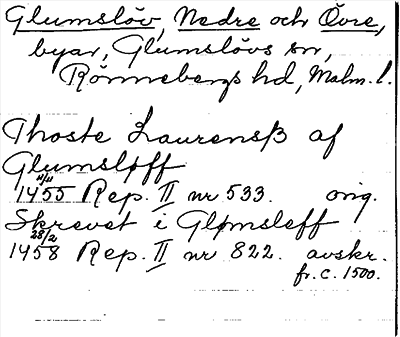 Glumslöv, Nedre och Övre,
byar, Glumslövs sn,
Rönnebergs hd, Malm. l.
Thoste Laurensß af
Glumsløff
11/11
1455 Rep. II nr 533. orig.
Skrevet i Glømsleff
28/2
1458 Rep. II nr 822. avskr.
fr. c. 1500.